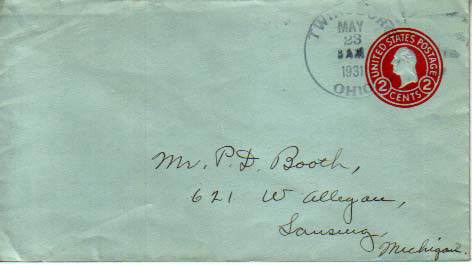 TWINSBURG
MAY
23
8 AM
1931
OHIO
UNITED STATES POSTAGE
2 CENTS 2
Mr. P. D. Booth,
621 W Allegan,
Lansing,
Michigan.